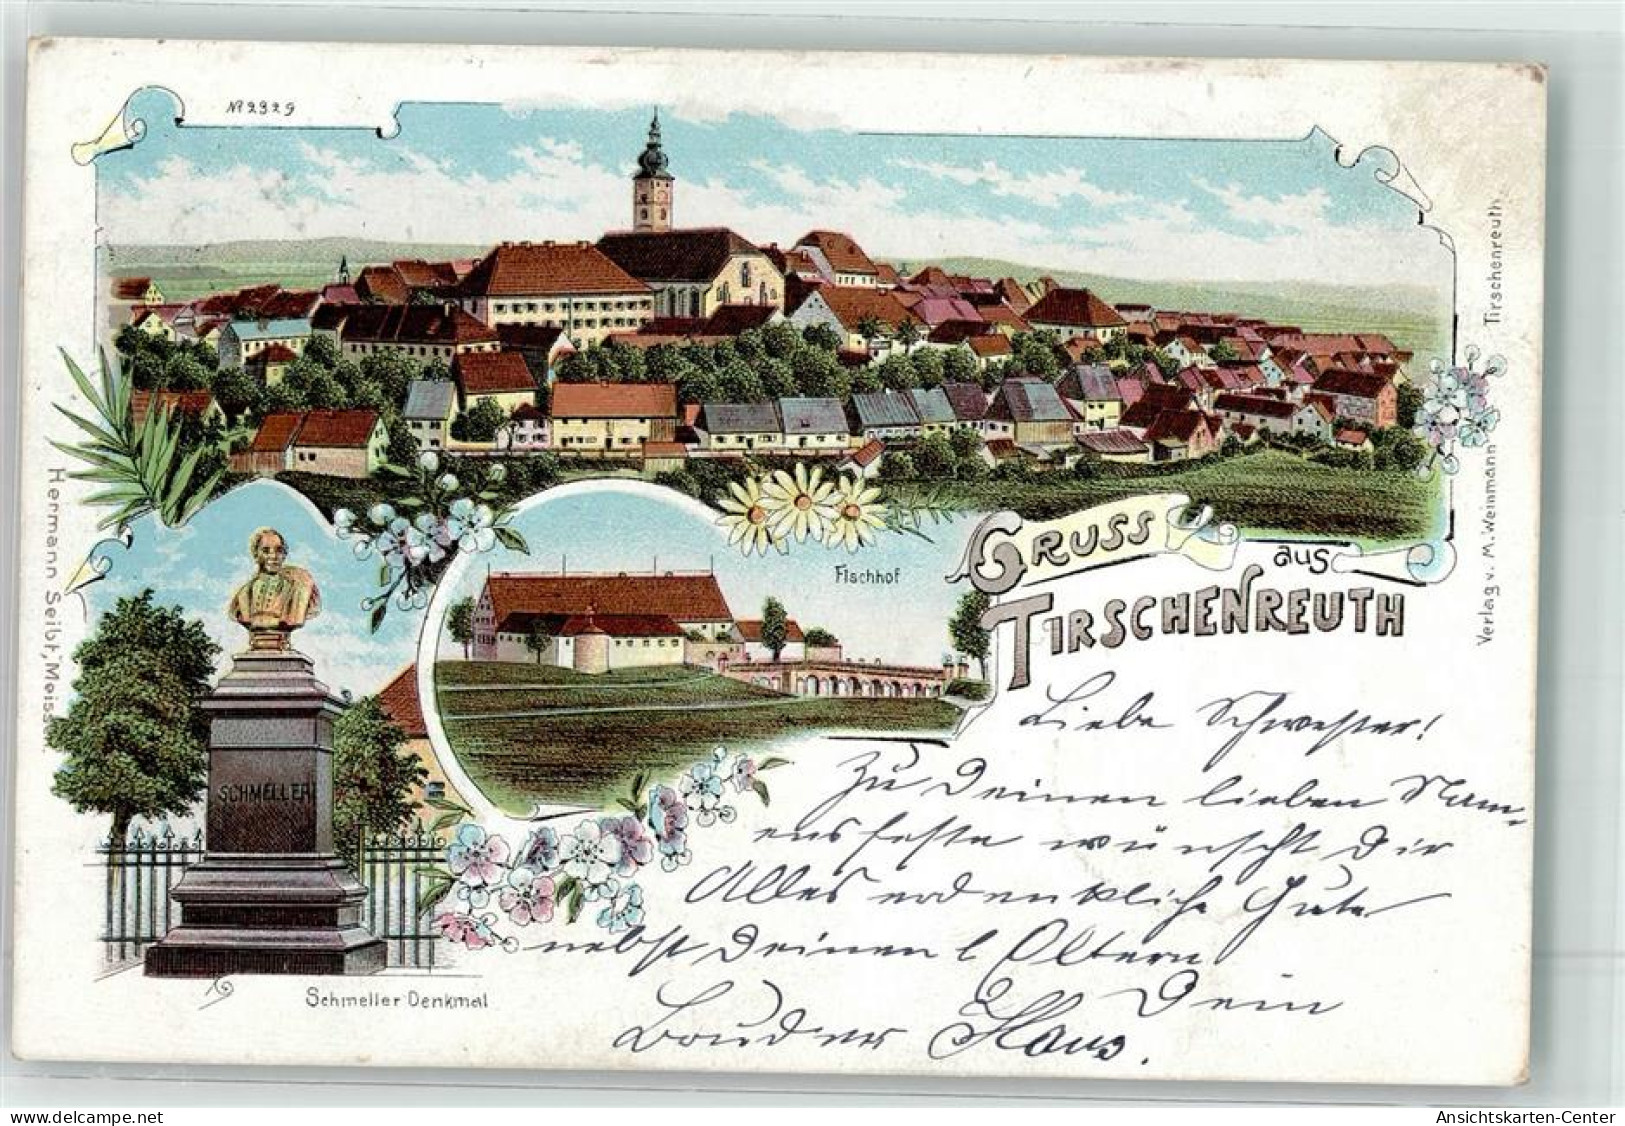 № 2329
Fischhof
GRUSS
aus
TIRSCHENREUTH
Hermann Seibt, Meiss
Verlag v. M. Weinmann Tirschenreuth.
SCHMELLER
Schmeller Denkmal
Liebe Schwester!
Zu Deinem lieben Nam-
ensfeste wünscht Dir
Alles erdenkliche Gute
nebst Deinen l Eltern
Dein
Bruder Hans.
Ansichtskarten-Center
www.delcampe.net